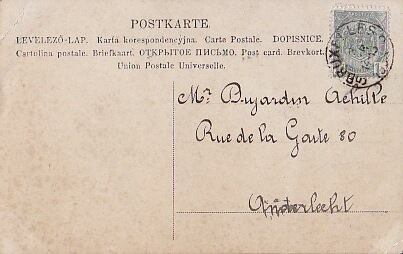 POSTKARTE.
LEVELEZŐ-LAP. Karta korespondencyjna. Carte Postale. DOPISNICE.
Cartolina postale. Briefkaart. ОТКРЫТОЕ ПИСЬМО. Post card. Brevkort.
Union Postale Universelle.
Mr Dujardin Achille
Rue de la Gaite 80
Anderlecht